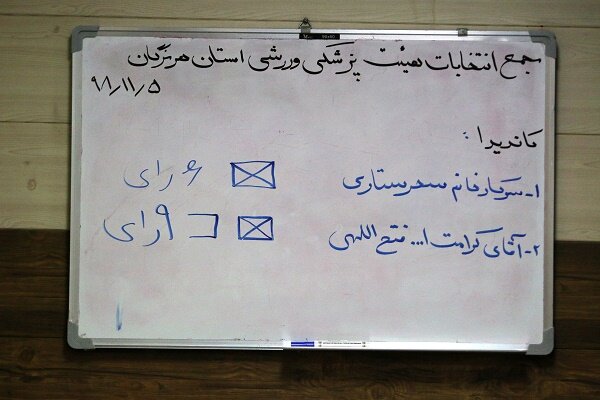 مجمع انتخابات هیئت پزشکی ورزشی استان هرمزگان
۹۸/۱۱/۵
کاندیدا :
۱- سرکار خانم سحر ستاری
۶ رای
۲- آقای کرامت ا... فتح اللهی
۹ رای